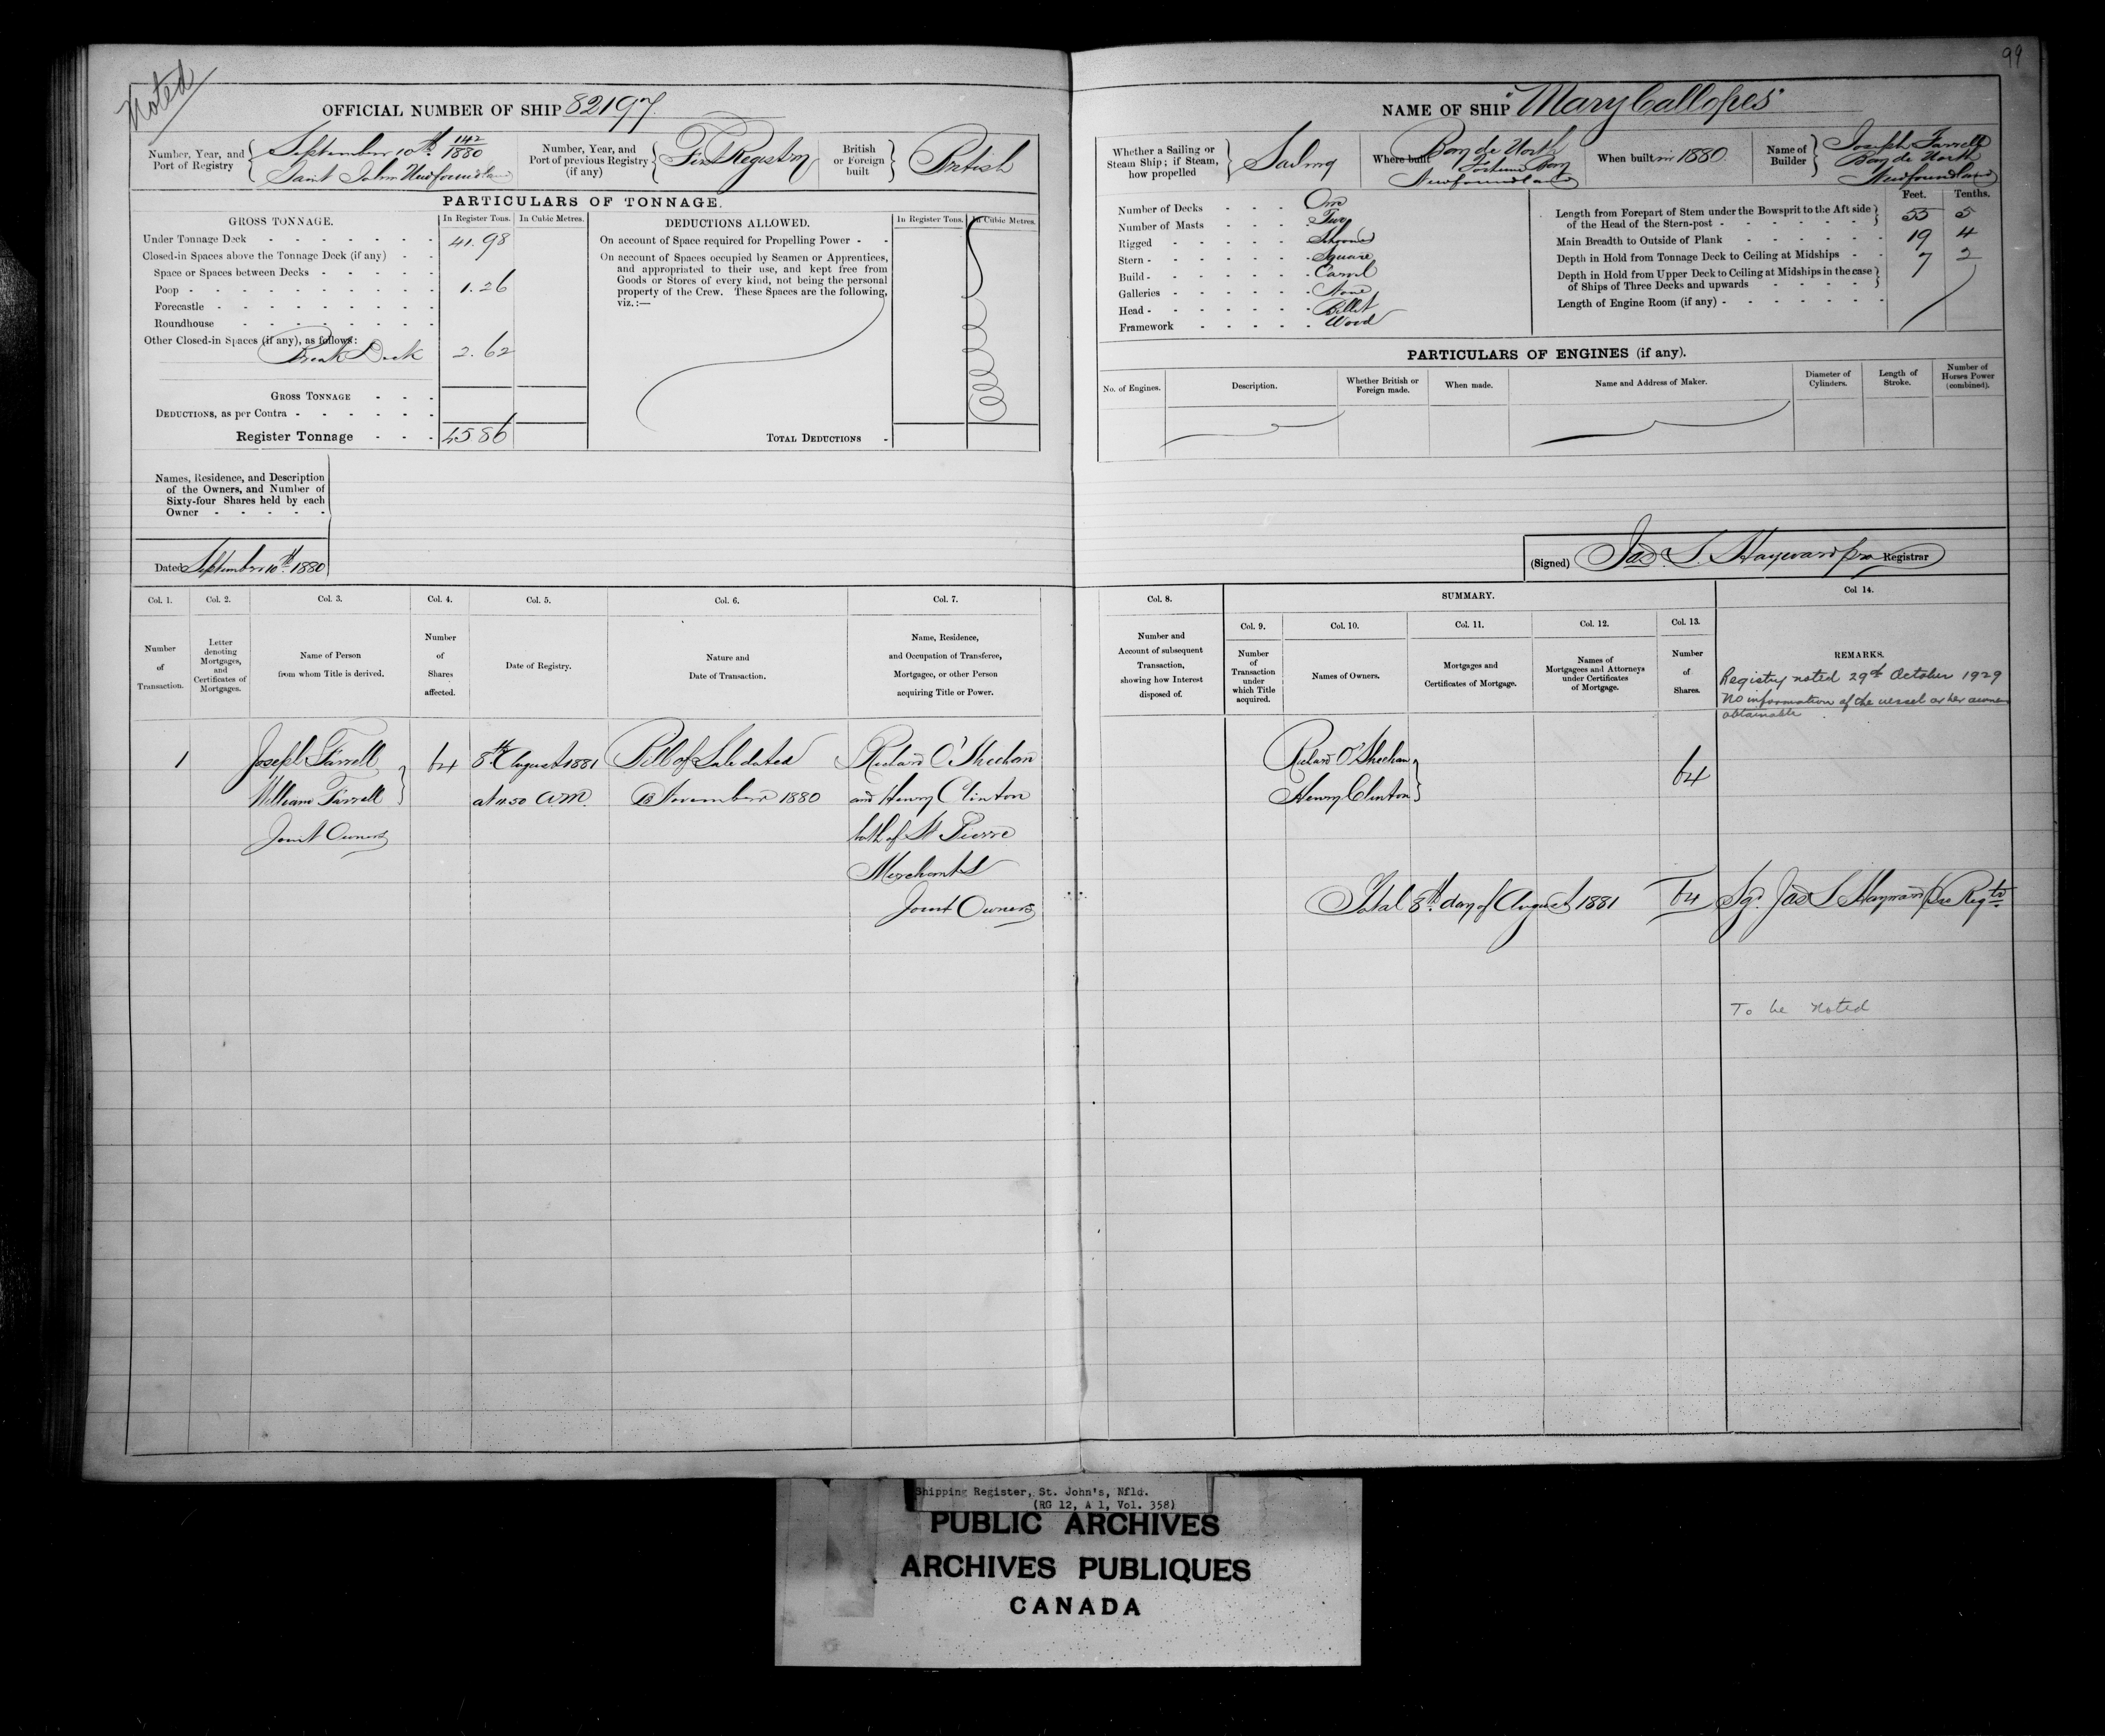 99
Noted
OFFICIAL NUMBER OF SHIP 82197.
Number, Year, and Port of Registry { September 10th 142/1880
Saint Johns Newfoundland
Number, Year, and Port of previous Registry (if any) { First Registry
British or Foreign built } British
PARTICULARS OF TONNAGE.
GROSS TONNAGE. In Register Tons. In Cubic Metres.
Under Tonnage Deck 41.98
Closed-in Spaces above the Tonnage Deck (if any)
Space or Spaces between Decks
Poop 1.26
Forecastle
Roundhouse
Other Closed-in Spaces (if any), as follows:
Break Deck 2.62
GROSS TONNAGE
DEDUCTIONS, as per Contra
Register Tonnage 45 86
DEDUCTIONS ALLOWED. In Register Tons. In Cubic Metres.
On account of Space required for Propelling Power
On account of Spaces occupied by Seamen or Apprentices,
and appropriated to their use, and kept free from
Goods or Stores of every kind, not being the personal
property of the Crew. These Spaces are the following,
viz.:—
TOTAL DEDUCTIONS
Names, Residence, and Description
of the Owners, and Number of
Sixty-four Shares held by each
Owner
Dated September 10th 1880
Col. 1. Col. 2. Col. 3. Col. 4. Col. 5. Col. 6. Col. 7.
Number of Transaction.
Letter denoting Mortgages, and Certificates of Mortgages.
Name of Person from whom Title is derived.
Number of Shares affected.
Date of Registry.
Nature and Date of Transaction.
Name, Residence, and Occupation of Transferee, Mortgagee, or other Person acquiring Title or Power.
1 Joseph Farrell 64 8th August 1881 Bill of Sale dated Richard O'Sheehan
William Farrell at 11.50 A.M. November 1880 and Henry Clinton
Joint Owners both of St Pierre
Merchants
Joint Owners
NAME OF SHIP "Mary Callopes"
Whether a Sailing or Steam Ship; if Steam, how propelled } Sailing
Where built Bay de North
Fortune Bay
Newfoundland
When built in 1880.
Name of Builder } Joseph Farrell
Bay de North
Newfoundland
Number of Decks One
Number of Masts Two
Rigged Schooner
Stern Square
Build Carvel
Galleries None
Head Billet
Framework Wood
Feet. Tenths.
Length from Forepart of Stem under the Bowsprit to the Aft side
of the Head of the Stern-post 55 5
Main Breadth to Outside of Plank 19 4
Depth in Hold from Tonnage Deck to Ceiling at Midships 7 2
Depth in Hold from Upper Deck to Ceiling at Midships in the case
of Ships of Three Decks and upwards
Length of Engine Room (if any)
PARTICULARS OF ENGINES (if any).
No. of Engines. Description. Whether British or Foreign made. When made. Name and Address of Maker. Diameter of Cylinders. Length of Stroke. Number of Horses Power (combined).
(Signed) Jas. S. Hayward pro Registrar
Col. 8. SUMMARY. Col 14.
Col. 9. Col. 10. Col. 11. Col. 12. Col. 13.
Number and Account of subsequent Transaction, showing how Interest disposed of.
Number of Transaction under which Title acquired.
Names of Owners.
Mortgages and Certificates of Mortgage.
Names of Mortgagees and Attorneys under Certificates of Mortgage.
Number of Shares.
REMARKS.
Registry noted 29th October 1929
No information of the vessel or her owners
obtainable
Richard O'Sheehan
Henry Clinton } 64
Total 8th day of August 1881 64 Sgd. Jas S Hayward Pro Regtr
To be Noted
Shipping Register, St. John's, Nfld.
(RG 12, A 1, Vol. 358)
PUBLIC ARCHIVES
ARCHIVES PUBLIQUES
CANADA